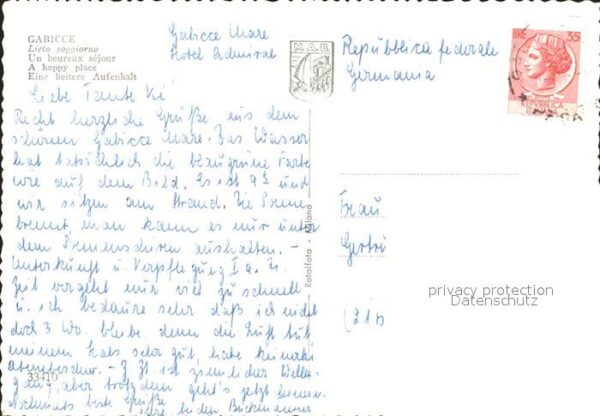 GABICCE
Lieto soggiorno
Un heureux séjour
A happy place
Eine heitere Aufenhalt
Gabicce Mare
Hotel Admiral
M.A.B.
LIRE 35
REPVBBLICA
Repúbblica federale
Germania
Liebe Tante
Recht herzliche Grüße aus dem
schönen Gabicce Mare. Das Wasser
hat tatsächlich die blaugrüne Farbe
wie auf dem Bild. Es ist 9 und
wir sitzen am Strand. Die Sonne
brennt, man kann es nur unter
dem Sonnenschirm aushalten. –
Unterkunft u. Verpflegung Ia. Die
Zeit vergeht mir viel zu schnell
u. ich bedaure sehr daß ich nicht
doch 3 Wo. bleibe, denn die Luft tut
meinem Hals sehr gut, habe keinerlei
Atembeschw. – Z. Zt. ist ziemlicher Wellen-
gang, aber trotzdem geht's jetzt hinein.
Nochmals beste Grüße
bei den
33410
Rotalfoto - Milano
Frau
Gertri
(21b
privacy protection
Datenschutz